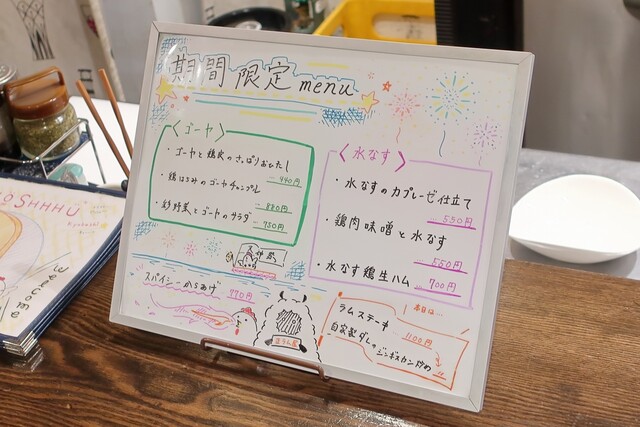 期間限定menu
<ゴーヤ>
・ゴーヤと鶏皮のさっぱりおひたし
---440円
・鶏はらみのゴーヤチャンプル
---880円
・炒野菜とゴーヤのサラダ
---730円
<水なす>
・水なすのカプレーゼ仕立て
550円
・鶏肉味噌と水なす
550円
・水なす鶏生ハム
700円
スパイシーからあげ
770円
本日は...
ラムステーキ
1100円
自家製ダレのジンギスカン炒め
SHHHU
Welcome